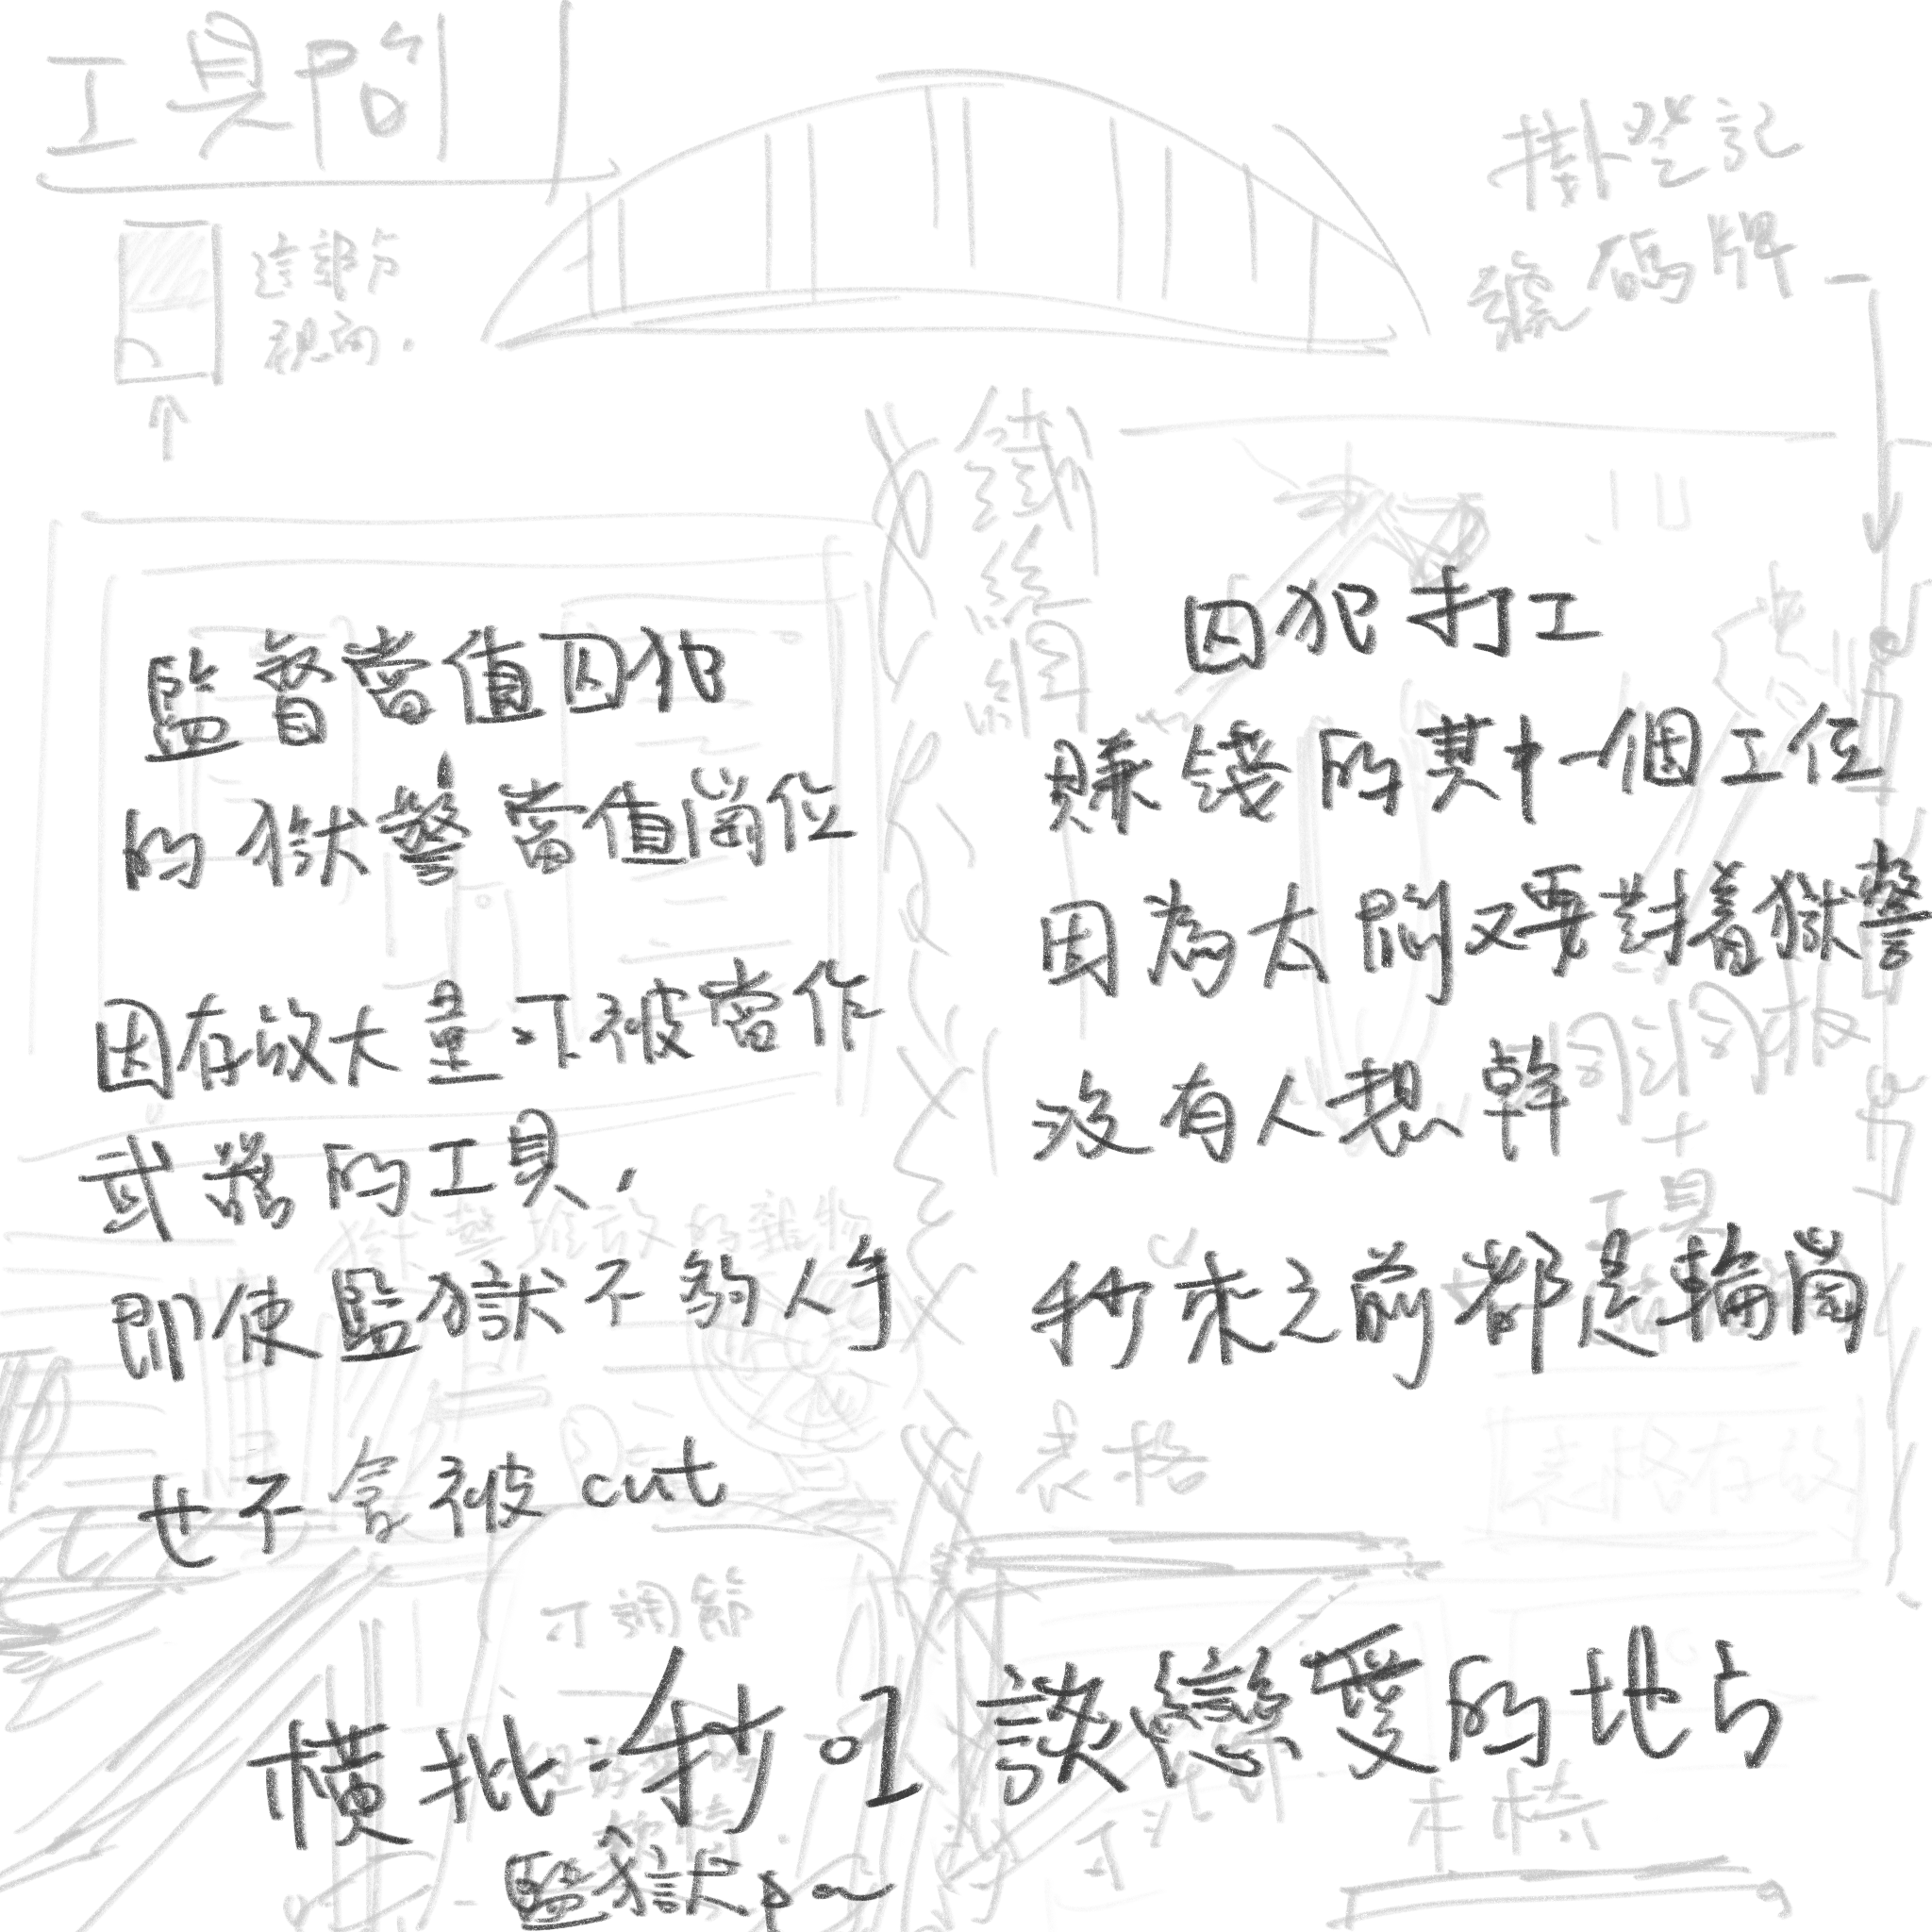 工具間
掛登記
號碼牌
這部分
視角.
鐵
絲
網
監督當值囚犯
的獄警當值崗位
因存放大量可被當作
武器的工具.
即使監獄不夠人手
也不會被cut
囚犯打工
賺錢的其中一個工位
因為太悶又要對着獄警
沒有人想幹
秒來之前都是輪崗
洞洞板
+
工具
獄警堆放的雜物
表格
表格存放
可調節
橫批:秒 01 談戀愛的地方
監獄pa
木椅